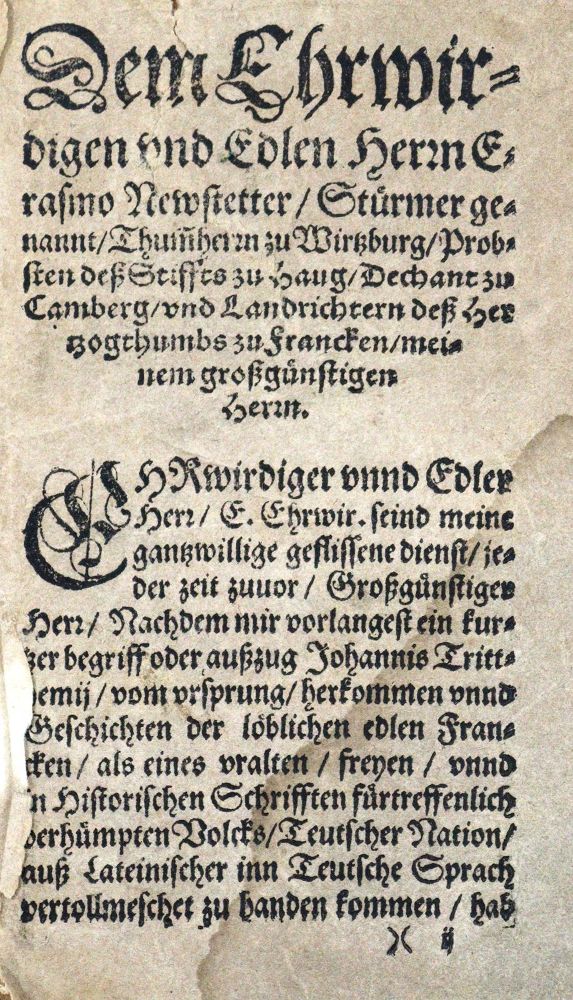 Dem Ehrwir⸗
digen vnd Edlen Herrn E⸗
rasmo Newstetter / Stürmer ge⸗
nannt / Thum̃herrn zu Wirtzburg / Prob⸗
sten deß Stiffts zu Haug / Dechant zu
Camberg / vnd Landrichtern deß Her
tzogthumbs zu Francken / mei⸗
nem großgünstigen
Herrn.
EHRwirdiger vnnd Edler
Herr / E. Ehrwir. seind meine
gantzwillige geflissene dienst / je⸗
der zeit zuuor / Großgünstiger
Herr / Nachdem mir vorlangest ein kur⸗
tzer begriff oder außzug Johannis Tritt⸗
hemij / vom vrsprung / herkommen vnnd
Geschichten der löblichen edlen Fran⸗
cken / als eines vralten / freyen / vnnd
in Historischen Schrifften fürtreffenlich
berhümpten Volcks / Teutscher Nation /
auß Lateinischer inn Teutsche Sprach
vertollmeschet zu handen kommen / hab
)( ij